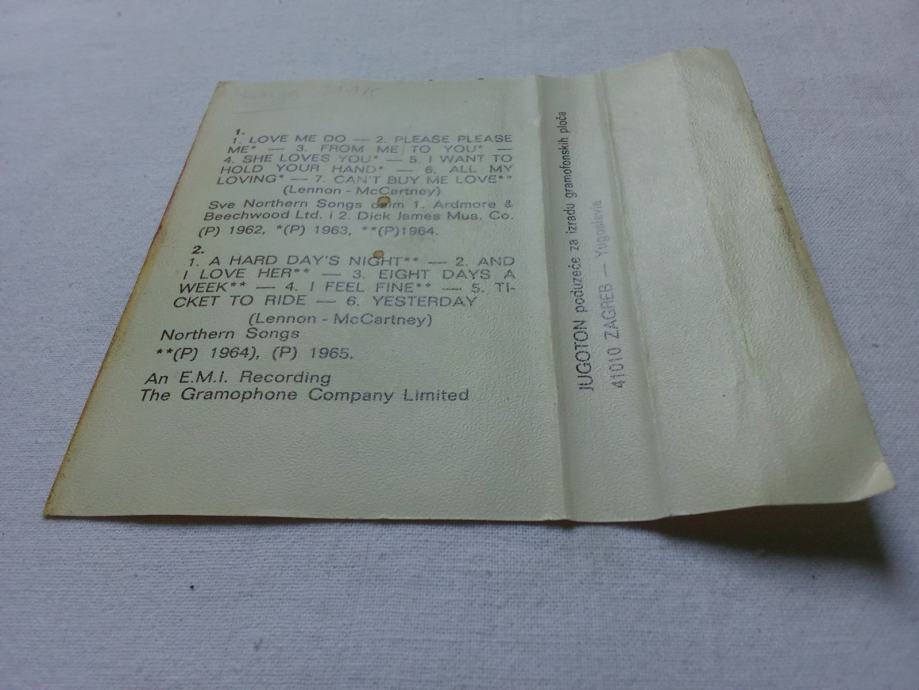 1.
1. LOVE ME DO — 2. PLEASE PLEASE
ME* — 3. FROM ME TO YOU* —
4. SHE LOVES YOU* — 5. I WANT TO
HOLD YOUR HAND* — 6. ALL MY
LOVING* — 7. CAN'T BUY ME LOVE**
(Lennon - McCartney)
Sve Northern Songs osim 1. Ardmore &
Beechwood Ltd. i 2. Dick James Mus. Co.
(P) 1962, *(P) 1963, **(P)1964.
2.
1. A HARD DAY'S NIGHT** — 2. AND
I LOVE HER** — 3. EIGHT DAYS A
WEEK** — 4. I FEEL FINE** — 5. TI-
CKET TO RIDE — 6. YESTERDAY
(Lennon - McCartney)
Northern Songs
**(P) 1964), (P) 1965.
An E.M.I. Recording
The Gramophone Company Limited
JUGOTON poduzeće za izradu gramofonskih ploča
41010 ZAGREB — Yugoslavia